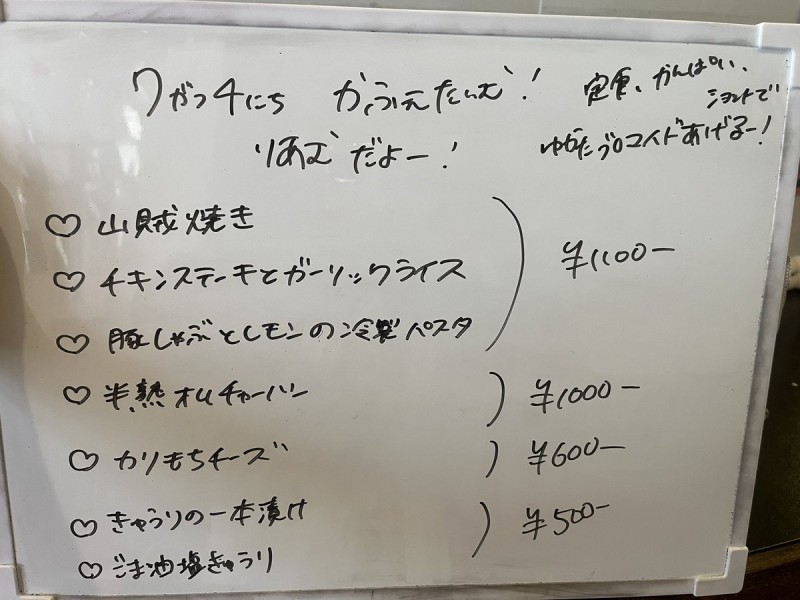 ワガっチにち かふぇたいむ！
りあむだよー！
定食、かんぱい、
ショットで
ゆらたブロマイドあげるー！
♡ 山賊焼き
♡ チキンステーキとガーリックライス
♡ 豚しゃぶとレモンの冷製パスタ
¥1100-
♡ 半熟オムチャーハン ¥1000-
♡ カリもちチーズ ¥600-
♡ きゅうりの一本漬け
♡ ごま油塩きゅうり
¥500-